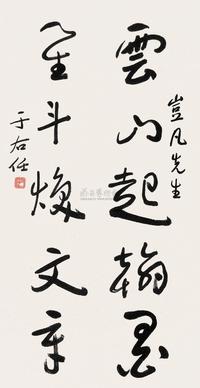 雲山起翰墨
豈凡先生
星斗煥文章
于右任